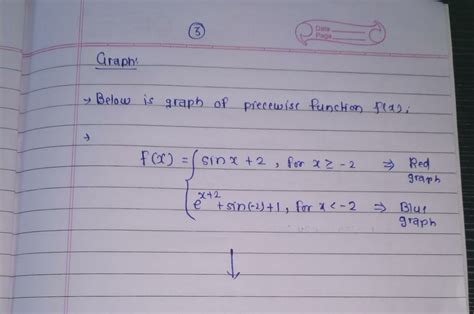 ③
Date
Page
Graph:
→ Below is graph of piecewise function f(x):
→
f(x) = { sin x + 2, for x ≥ -2 ⇒ Red graph
e^{x+2} + sin(-2) + 1, for x < -2 ⇒ Blue graph
↓